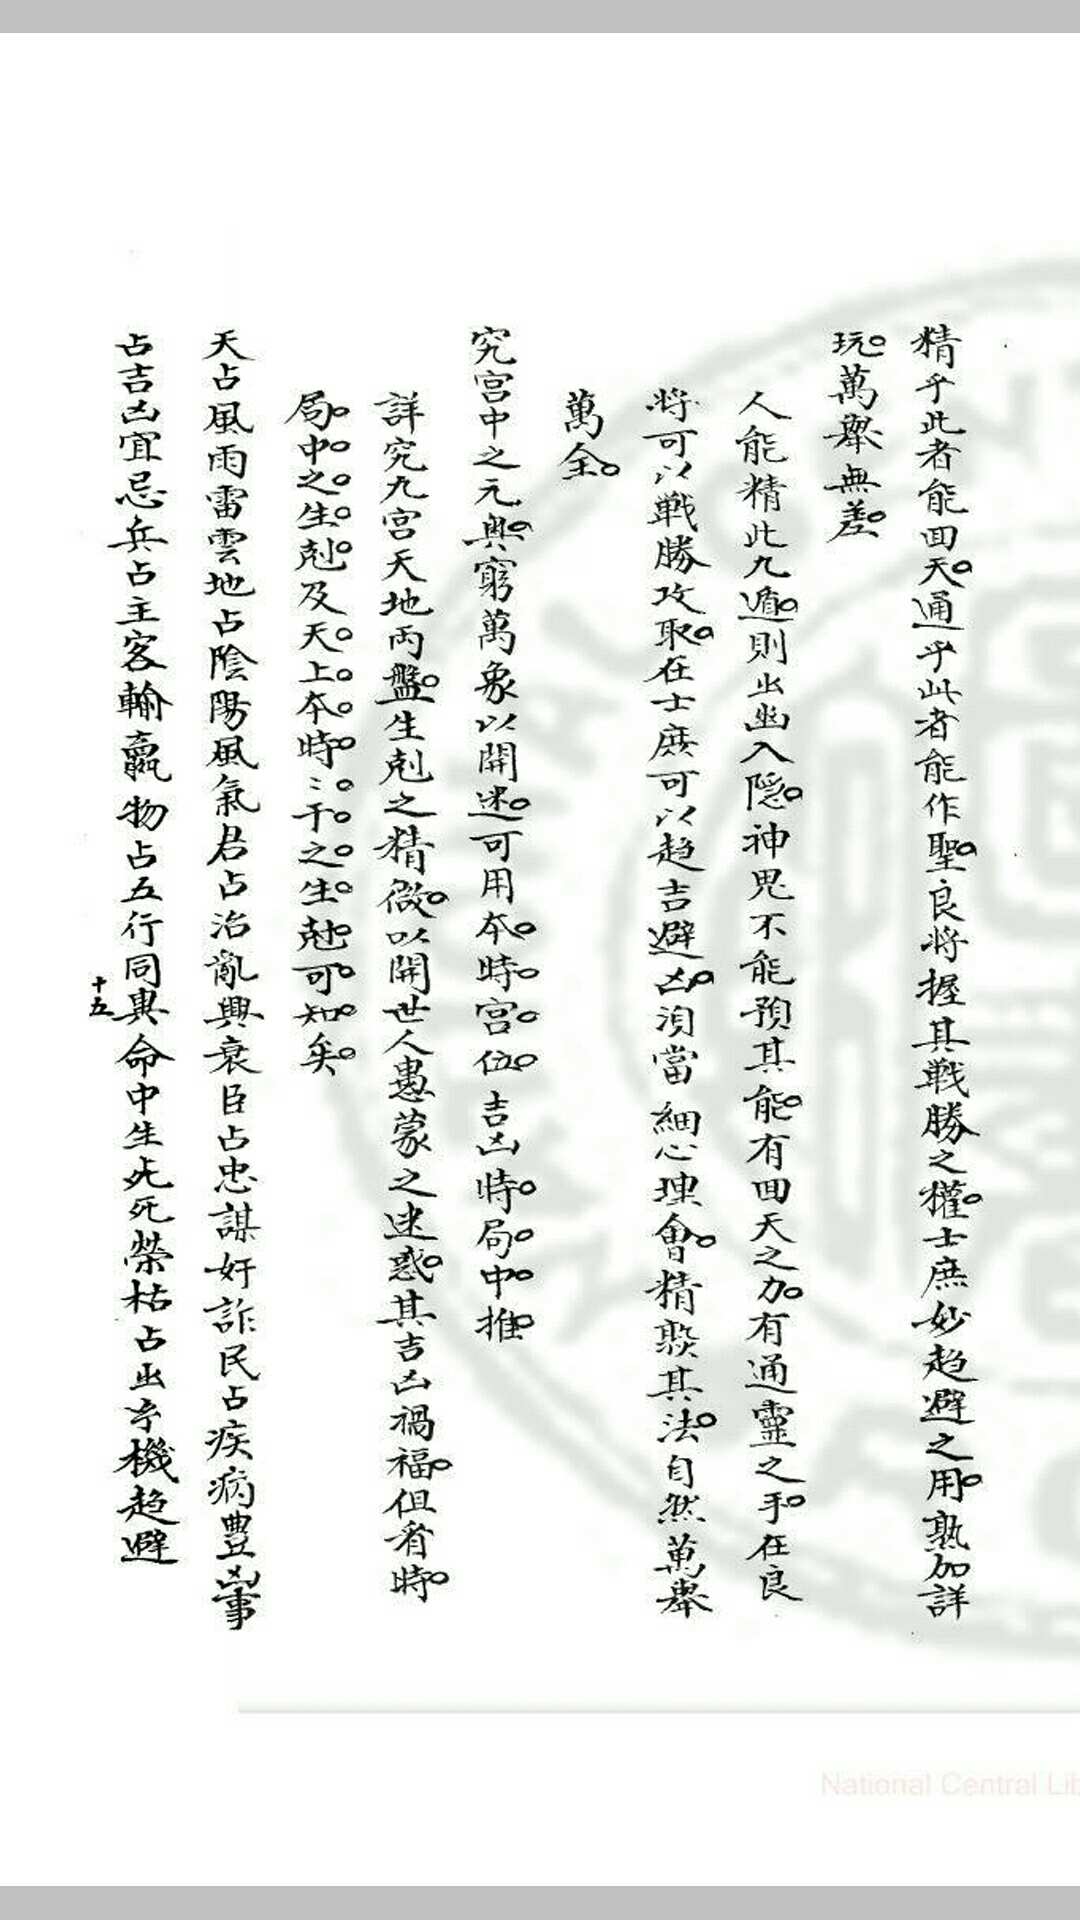 精乎此者能回天。通乎此者能作聖。良將握其戰勝之權。士庶妙趋避之用。熟加詳
玩。萬舉無差。
人能精此九遁。則出幽入隱。神鬼不能預其能。有回天之力。有通靈之手。在良
將可以戰勝攻取。在士庶可以趋吉避凶。須當細心理會。精熟其法。自然萬舉
萬全。
究宮中之元奧。窮萬象以開迷。可用本。時。宮。位。吉凶時。局。中。推。
詳究九宮天地両盤。生剋之精微。以開世人愚蒙之迷惑。其吉凶禍福。但看時。
局。中。之。生。剋。及天。上。本。時。〻。干。之。生。剋。可。知。矣。
天占風雨雷雲地占陰陽風氣君占治亂興衰臣占忠謀奸詐民占疾病豊凶事
占吉凶宜忌兵占主客輸贏物占五行同異命中生死榮枯占出字機趋避
十五
National Central Lib